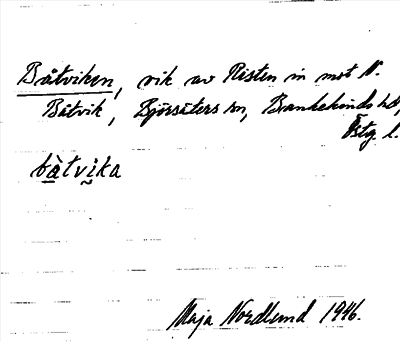 Båtviken, vik av Risten in mot N.
Båtvik, Björsäters sn, Bankekinds hd,
Östg. l.
bàtvika
Maja Nordlund 1946.